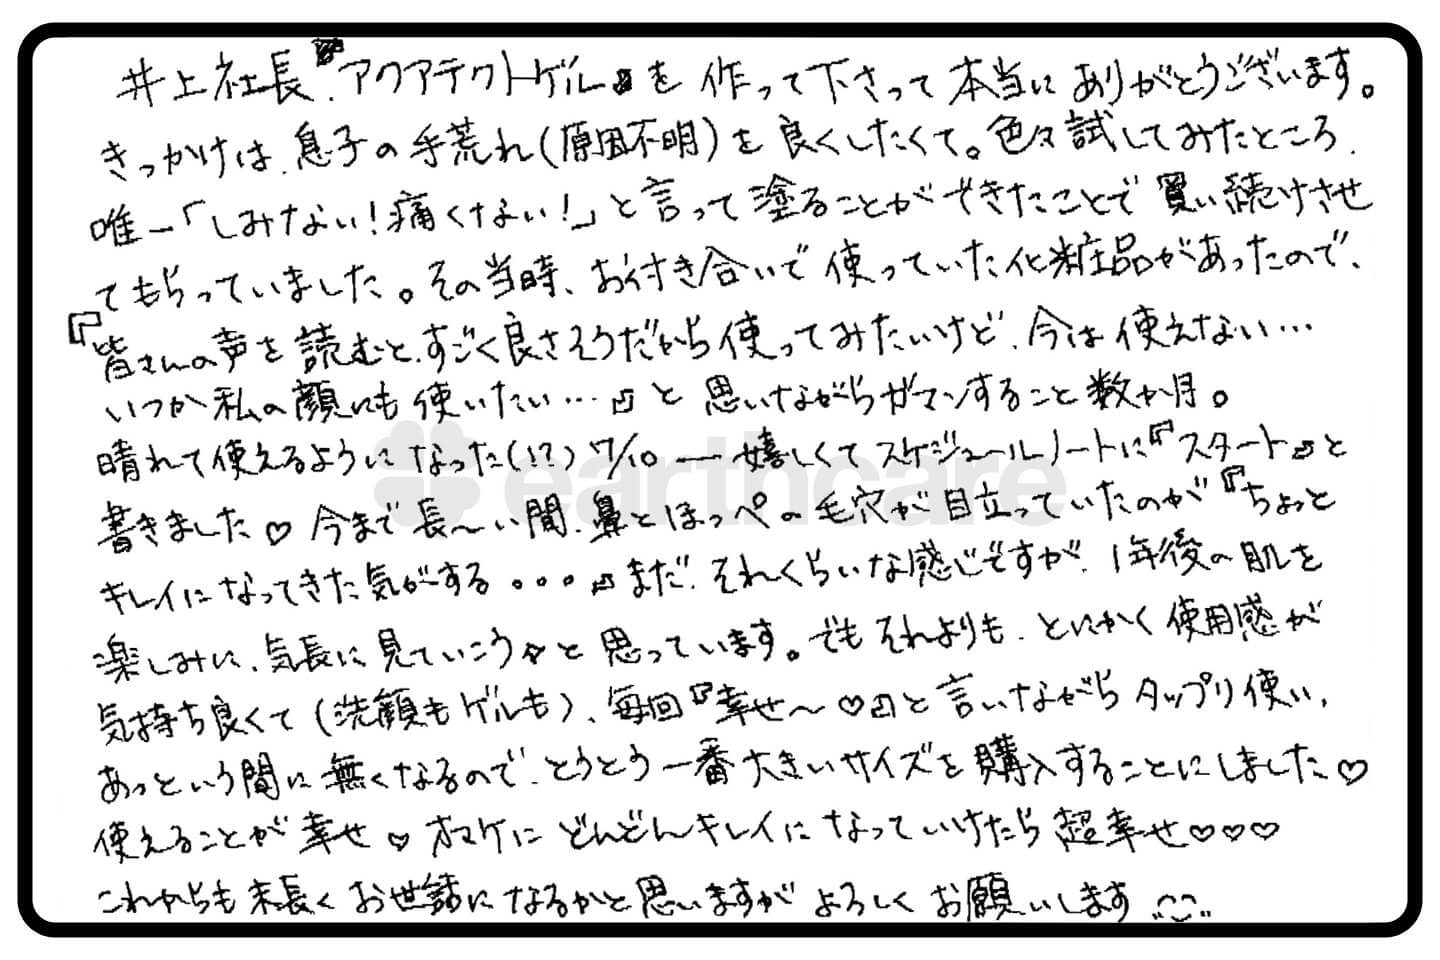 井上社長、『アクアテクトゲル』を作って下さって本当にありがとうございます。
きっかけは、息子の手荒れ(原因不明)を良くしたくて。色々試してみたところ、
唯一「しみない!痛くない!」と言って塗ることができたことで買い続けさせ
てもらっていました。その当時、お付き合いで使っていた化粧品があったので、
『皆さんの声を読むと、すごく良さそうだから使ってみたいけど、今は使えない…
いつか私の顔にも使いたい…』と思いながらガマンすること数か月。
晴れて使えるようになった(!?)7/10―嬉しくてスケジュールノートに『スタート』と
書きました♡今まで長〜い間、鼻とほっぺの毛穴が目立っていたのが『ちょっと
キレイになってきた気がする。。。』まだ、それくらいな感じですが、1年後の肌を
楽しみに、気長に見ていこう☆と思っています。でもそれよりも、とにかく使用感が
気持ち良くて(洗顔もゲルも)、毎回『幸せ〜♡』と言いながらタップリ使い、
あっという間に無くなるので、とうとう一番大きいサイズを購入することにしました♡
使えることが幸せ♡オマケにどんどんキレイになっていけたら超幸せ♡♡♡
これからも末長くお世話になるかと思いますがよろしくお願いします^^
earthcare